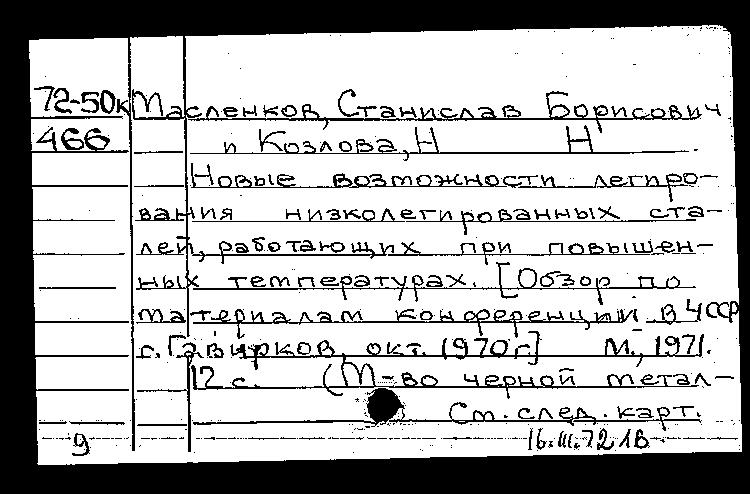 72-50к Масленков, Станислав Борисович
466 и Козлова, Н Н
Новые возможности легиро-
вания низколегированных ста-
лей, работающих при повышен-
ных температурах. [Обзор по
материалам конференции в ЧССР
г. Гавирков, окт. 1970 г.] М., 1971.
12 с. (М-во черной метал-
См. след. карт.
9 16.III.72 1в